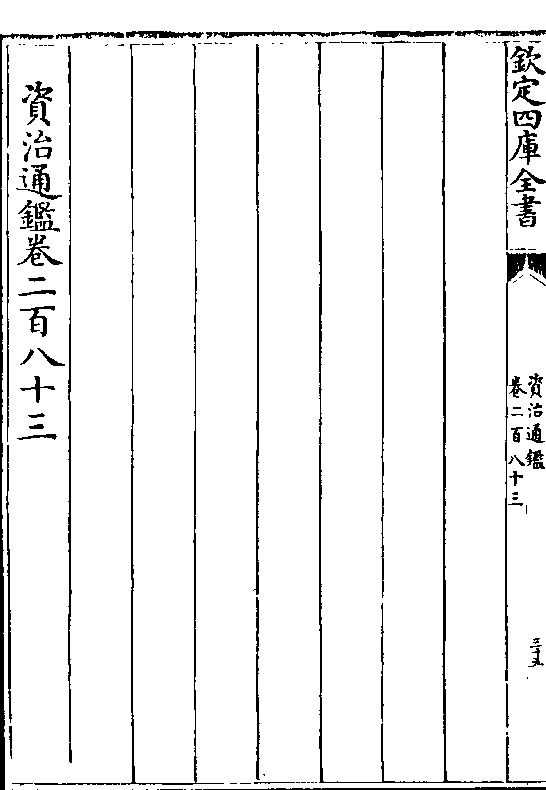 欽定四庫全書
資治通鑑
卷二百八十三
三十五
資治通鑑卷二百八十三